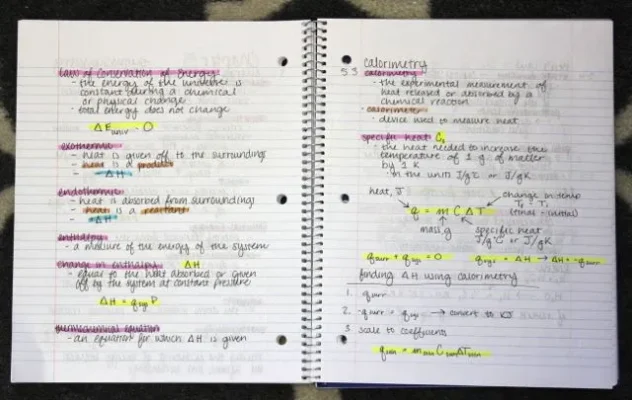 Laws of Conservation of Energy
- the energy of the universe is
constant during a chemical
or physical change
- total energy does not change
ΔE univ = 0
exothermic
- heat is given off to the surroundings
- heat is a product
- ΔH
endothermic
- heat is absorbed from surroundings
- heat is a reactant
+ΔH
enthalpy
- a measure of the energy of the system
change in enthalpy ΔH
- equal to the heat absorbed or given
off by the system at constant pressure
ΔH = q sys P
thermochemical equation
- an equation for which ΔH is given
calorimetry
5.3 calorimetry
- the experimental measurement of
heat released or absorbed by a
chemical reaction
- calorimeter
- device used to measure heat
specific heat C
- the heat needed to increase the
temperature of 1 g. of matter
by 1 K
- in the units J/g°C or J/gK
heat, J
change in temp
(final - initial)
q = m C Δ T
mass, g
specific heat
J/g°C or J/gK
q surr + q sys = 0
q sys = ΔH → ΔH = -q surr
finding ΔH using calorimetry
1. q surr
2. -q surr = q sys → convert to KJ
3. scale to coefficients